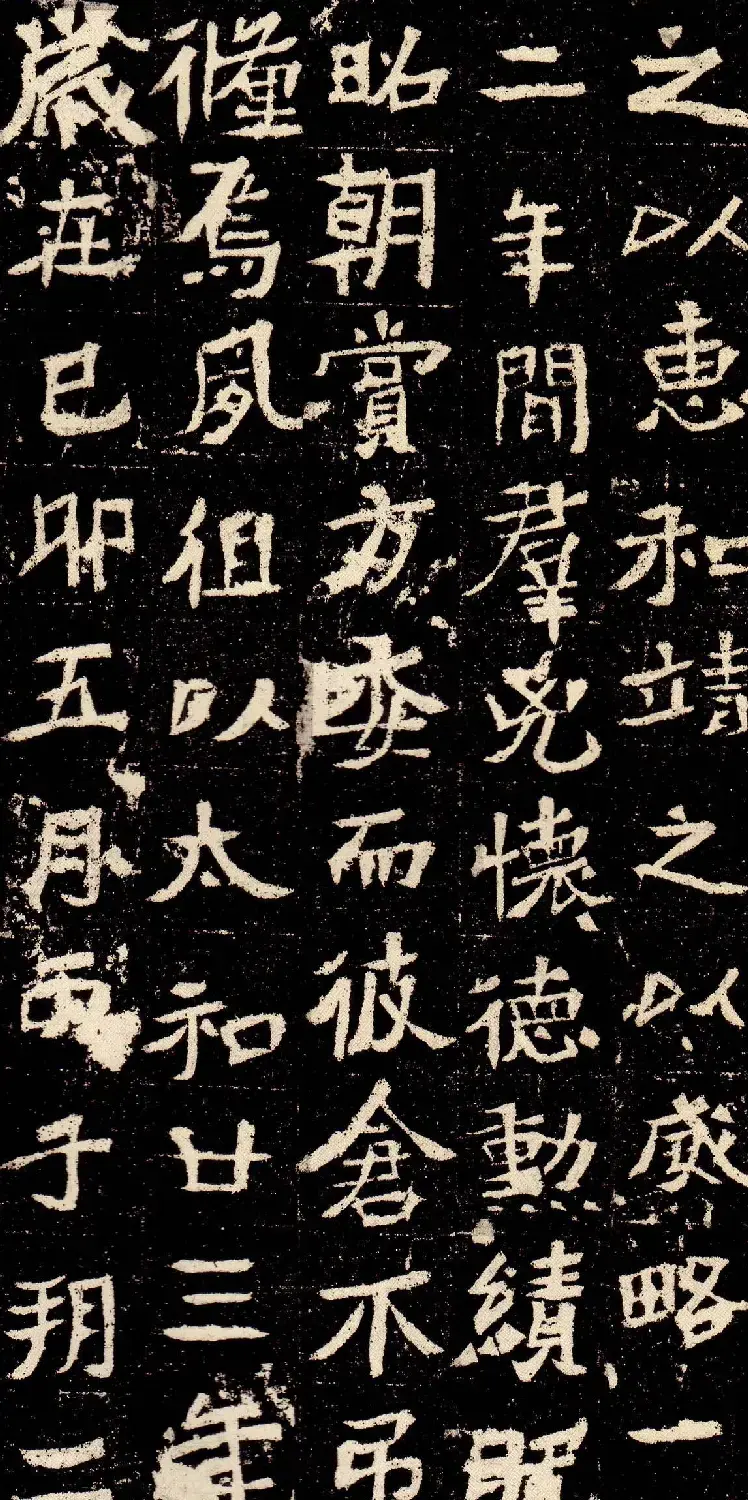 之以惠和靖之以威略一
二年間羣兇懷德勳績既
昭朝賞方而彼倉不弔
焉夙徂以太和廿三年
歲在巳卯五月丙子朔二